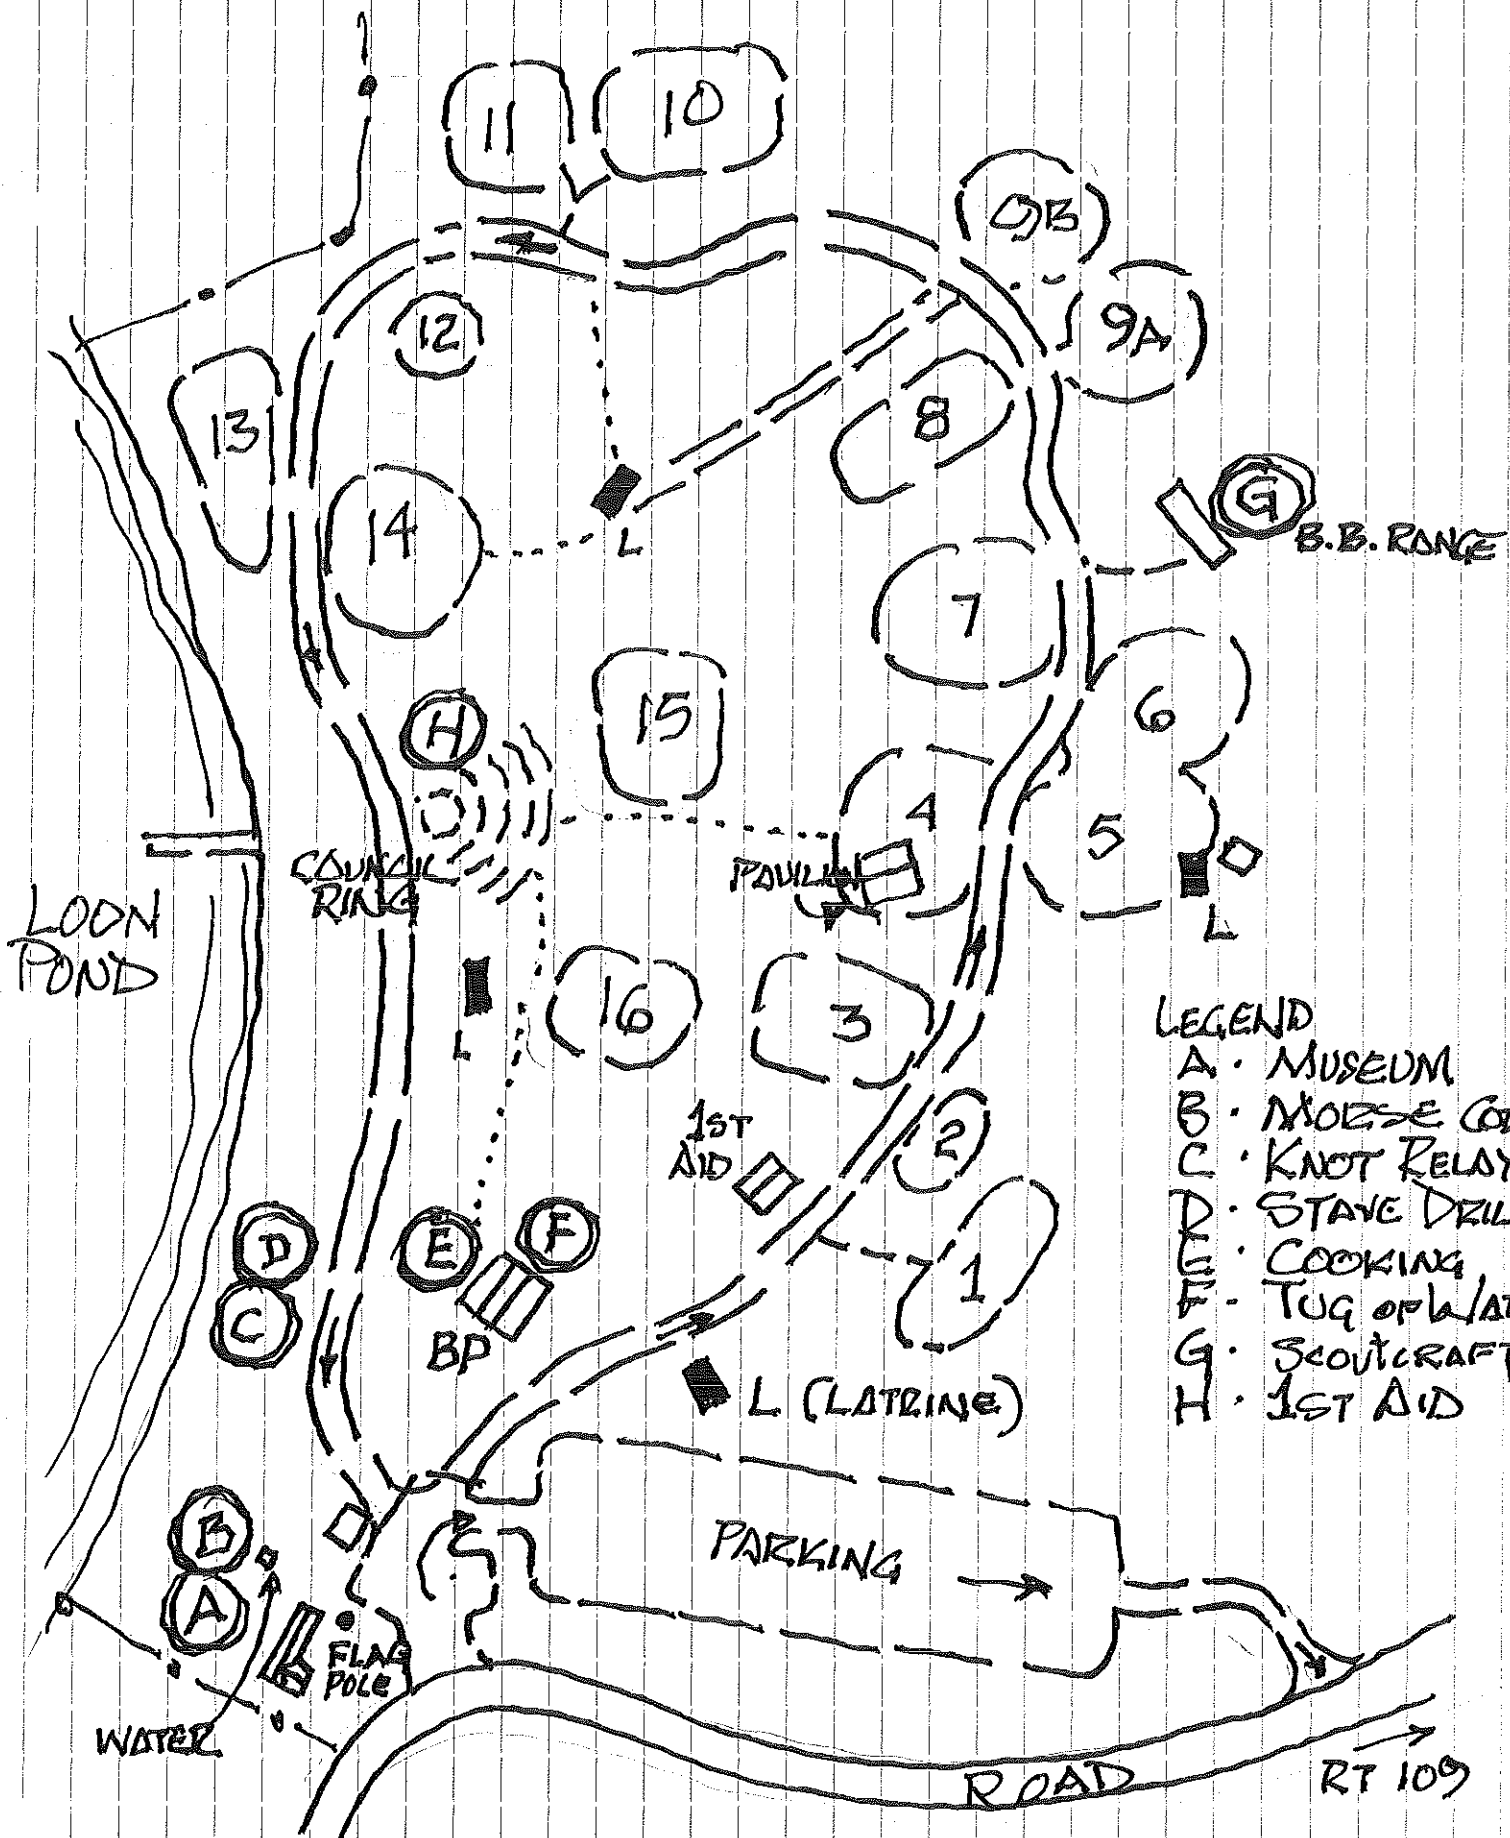 11
10
9B
12
9A
13
8
14
L
G
B.B. RANGE
7
H
15
6
4
5
COUNCIL
RING
PAVILION
LOON
POND
L
16
3
L
LEGEND
A · MUSEUM
B · MORSE
C · KNOT RELAY
D · STAVE
E · COOKING
F - TUG OF
G · SCOUTCRAFT
H · 1ST AID
1ST
AID
2
D
E
F
C
1
BP
L (LATRINE)
B
PARKING
A
FLAG
POLE
WATER
ROAD
RT 109